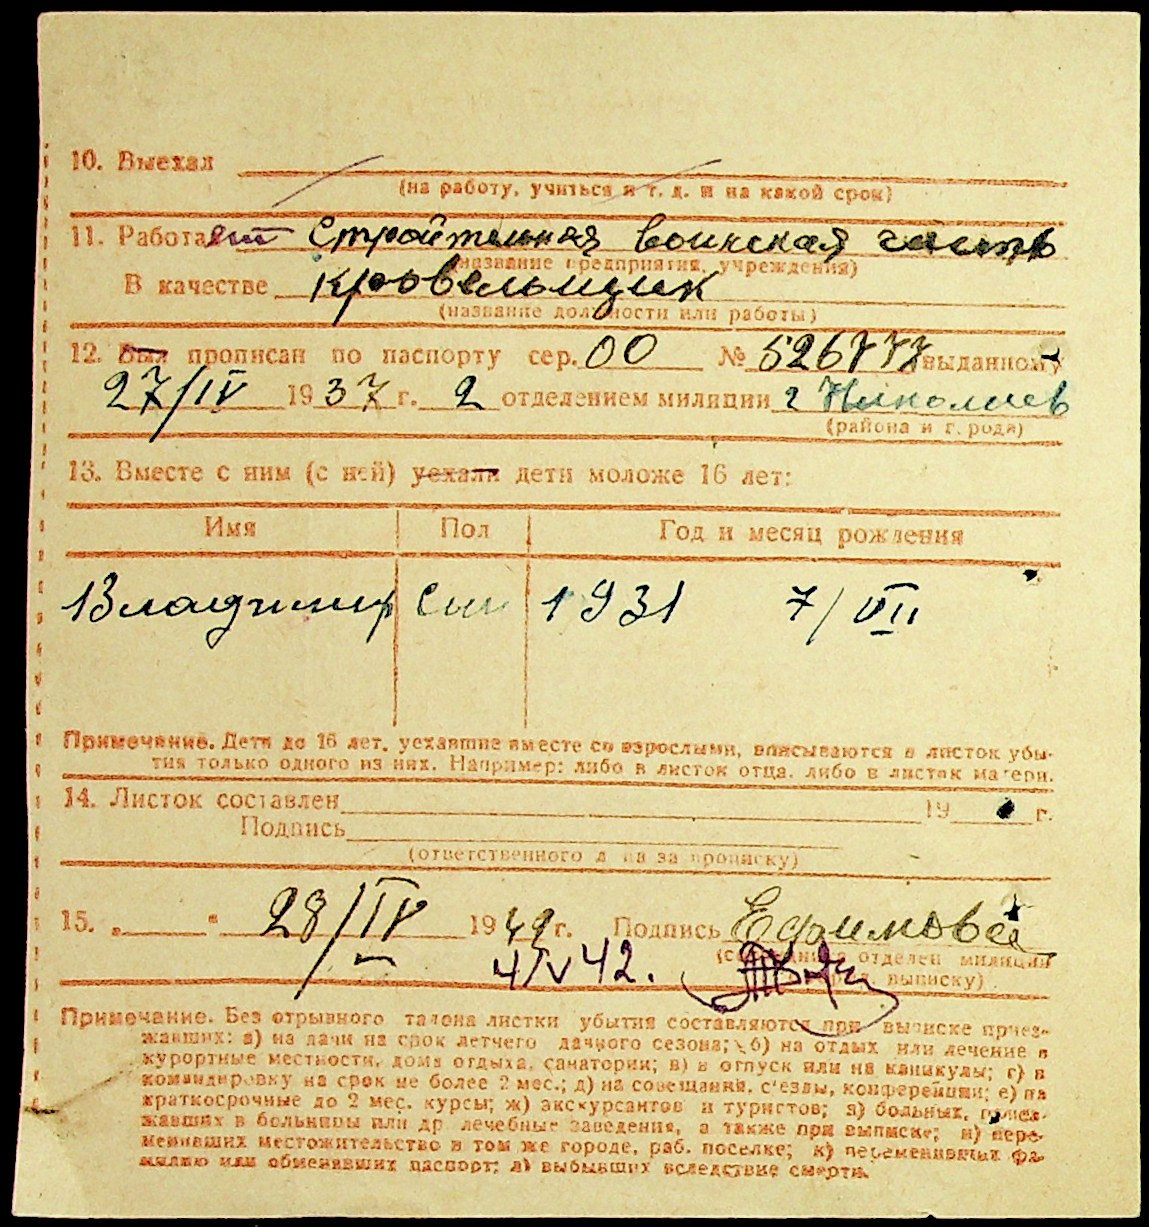 10. Выехал
(на работу, учиться и т. д. и на какой срок)
11. Работает Строительная воинская часть
(название предприятия, учреждения)
В качестве кровельщик
(название должности или работы)
12. Был прописан по паспорту сер. 00 № 526777 выданному
27/IV 1937 г. 2 отделением милиции г Николаев
(района и города)
13. Вместе с ним (с ней) уехали дети моложе 16 лет:
Имя Пол Год и месяц рождения
Владимир сын 1931 7/VII
Примечание. Дети до 16 лет, уехавшие вместе со взрослыми, вписываются в листок убы-
тия только одного из них. Например: либо в листок отца, либо в листок матери.
14. Листок составлен 19 г.
Подпись
(ответственного лица за прописку)
15. „ " 28/IV 1942 г. Подпись Ефимова
(сотрудника отделен милиции
выписку)
4/V 42.
Примечание. Без отрывного талона листки убытия составляются при выписке приез-
жавших: а) на дачи на срок летнего дачного сезона; б) на отдых или лечение в
курортные местности, дома отдыха, санатории; в) в отпуск или на каникулы; г) в
командировку на срок не более 2 мес.; д) на совещания, съезды, конференции; е) на
краткосрочные до 2 мес. курсы; ж) экскурсантов и туристов; з) больных, приез-
жавших в больницы или др лечебные заведения, а также при выписке; и) пере-
менивших местожительство в том же городе, раб. поселке; к) переменивших фа-
милию или обменявших паспорт; л) выбывших вследствие смерти.